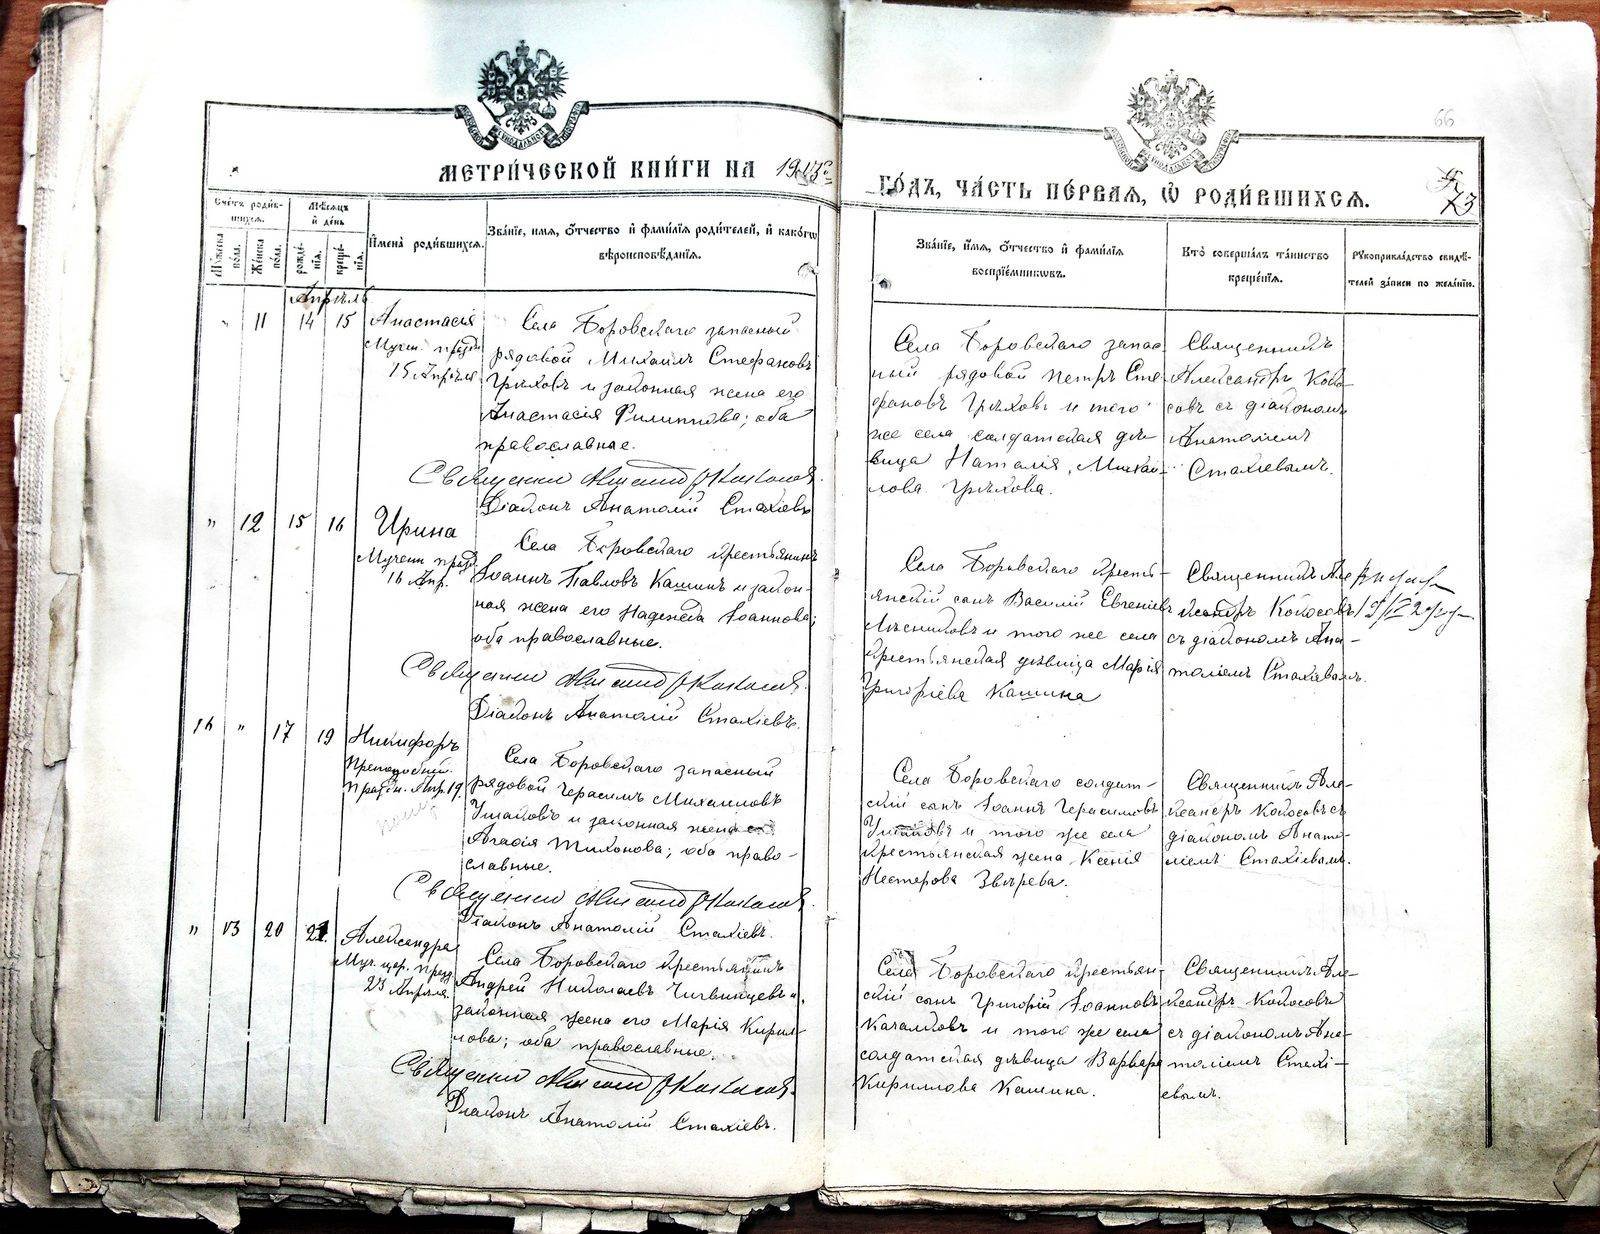 МЕТРИ́ЧЕСКОЙ КНИ́ГИ НА
ГО́ДЪ, ЧА́СТЬ ПЕ́РВАЯ, Ѿ РОДИ́ВШИХСЯ.
66
Сче́тъ роди́в-
шихся.
Мѣ́сяцъ
и҆ де́нь
Мꙋ́жеска
по́ла.
Же́нска
по́ла.
рожде́-
нїя.
креще́-
нїя.
И҆мена̀ роди́вшихся.
Зва́нїе, и҆́мя, ѻ҆́тчество и҆ фами́лїя роди́телей, и҆ како́гѡ
вѣроисповѣ́данїя.
Зва́нїе, и҆́мя, ѻ҆́тчество и҆ фами́лїя
воспрїе́мниковъ.
Кто̀ соверша́лъ та́инство
креще́нїя.
Рꙋкоприкла́дство свидѣ́-
телей за́писи по жела́нїю.
Апрѣль
" 11 14 15
Анастасія
Мучен. празд.
15 Апрѣля
Села Боровскаго запасный
рядовой Михаилъ Стефановъ
Грѣховъ и законная жена его
Анастасія Филиппова; оба
православные.
Священникъ Александръ Кокосовъ.
Діаконъ Анатолій Стахіевъ
Села Боровскаго запас-
ный рядовой Петръ Сте-
фановъ Грѣховъ и того
же села солдатская дѣ-
вица Наталія Михаи-
лова Грѣхова.
Священникъ
Александръ Коко-
совъ съ діакономъ
Анатоліемъ
Стахіевымъ.
" 12 15 16
Ирина
Мучен. празд.
16 Апр.
Села Боровскаго крестьянинъ
Іоаннъ Павловъ Кашинъ и закон-
ная жена его Надежда Іоаннова;
оба православные.
Священникъ Александръ Кокосовъ.
Діаконъ Анатолій Стахіевъ.
Села Боровскаго кресть-
янскій сынъ Василій Евгеніевъ
Лѣсниковъ и того же села
крестьянская дѣвица Марія
Григоріева Кашина
Священникъ Але-
ксандръ Кокосовъ
съ діакономъ Ана-
толіемъ Стахіевымъ.
16 " 17 19
Никифоръ
Преподобный.
Празн. Апр. 19.
Села Боровскаго запасный
рядовой Герасимъ Михаиловъ
Ушаковъ и законная жена его
Агафія Тихонова; оба право-
славные.
Священникъ Александръ Кокосовъ.
Діаконъ Анатолій Стахіевъ.
Села Боровскаго солдат-
скій сынъ Іоаннъ Герасимовъ
Ушаковъ и того же села
крестьянская жена Ксенія
Нестерова Звѣрева.
Священникъ Але-
ксандръ Кокосовъ съ
діакономъ Анато-
ліемъ Стахіевымъ.
" 13 20 21.
Александра
Муч. цар. празд.
23 Апрѣля.
Села Боровскаго крестьянинъ
Андрей Николаевъ и
законная жена его Марія Кирил-
лова; оба православные.
Священникъ Александръ Кокосовъ.
Діаконъ Анатолій Стахіевъ.
Села Боровскаго крестьян-
скій сынъ Григорій Іоанновъ
Качалковъ и того же села
солдатская дѣвица Варвара
Кириллова Кашина.
Священникъ Але-
ксандръ Кокосовъ
съ діакономъ Ана-
толіемъ Стахі-
евымъ.